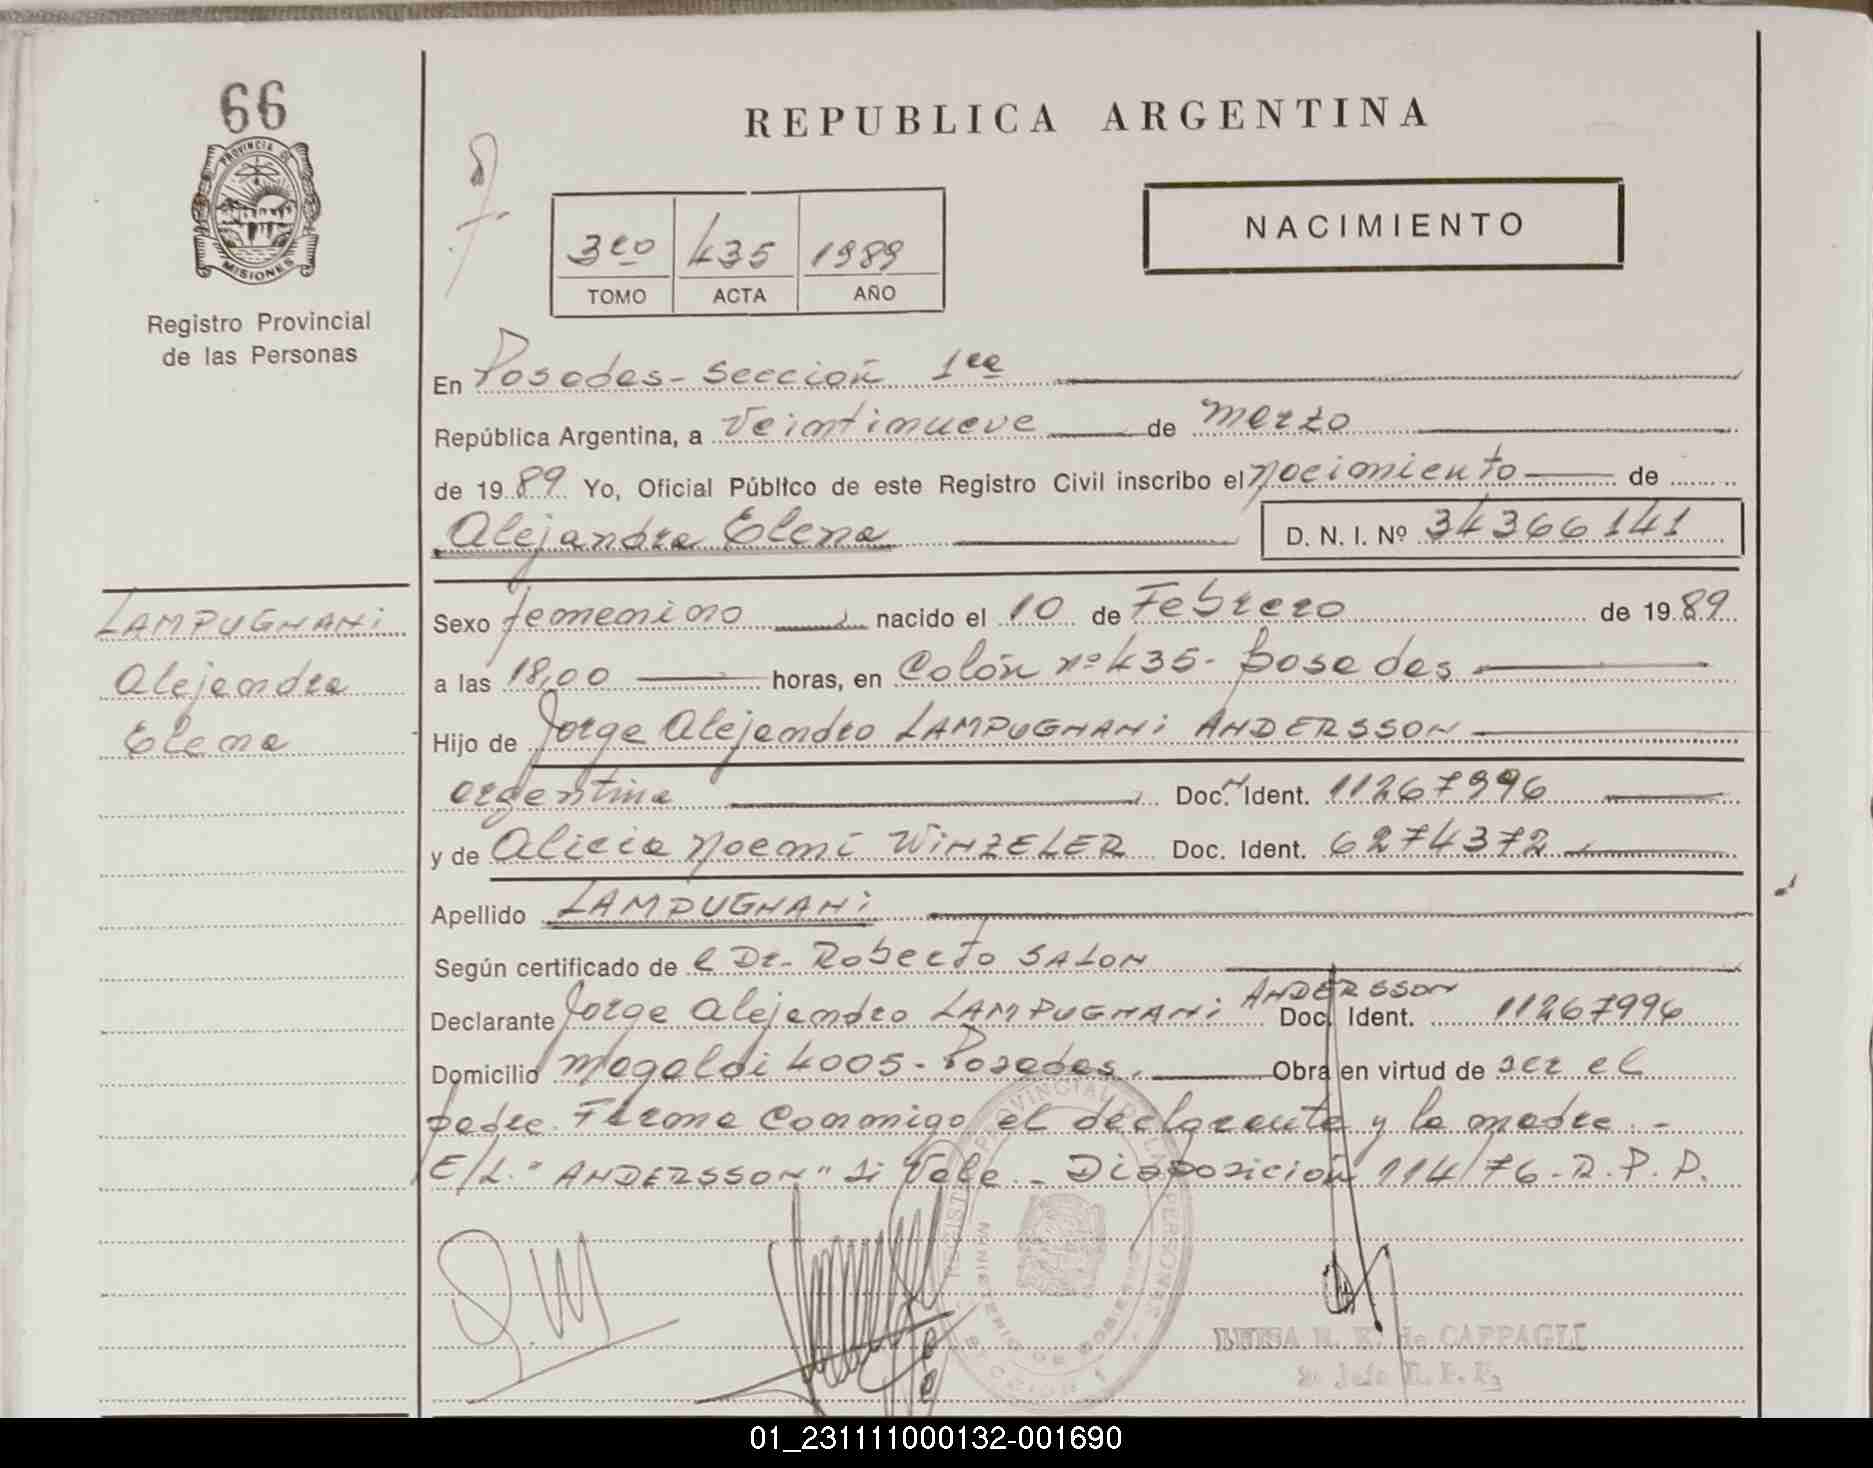 66
PROVINCIA DE
MISIONES
Registro Provincial
de las Personas
REPUBLICA ARGENTINA
NACIMIENTO
3ro 435 1989
TOMO ACTA AÑO
En Posadas - Sección 1ra
República Argentina, a Veintinueve de marzo
de 1989 Yo, Oficial Público de este Registro Civil inscribo el nacimiento de
Alejandra Elena D. N. I. Nº 34366141
LAMPUGNANI
Alejandra
Elena
Sexo femenino nacido el 10 de Febrero de 1989
a las 18,00 horas, en Colón nº 435 - Posadas
Hijo de Jorge Alejandro LAMPUGNANI ANDERSSON
argentina Doc. Ident. 11267996
y de Alicia Noemí WINZELER Doc. Ident. 6274372
Apellido LAMPUGNANI
Según certificado de el Dr. Roberto SALON
Declarante Jorge Alejandro LAMPUGNANI ANDERSSON Doc. Ident. 11267996
Domicilio Magaldi 4005 - Posadas. Obra en virtud de ser el
padre. Firma conmigo el declarante y la madre. -
E/L. "ANDERSSON" Si Vale - Disposición 114/76 - R. P. P.
LUISA R. K. de CAPPAGLI
01_231111000132-001690